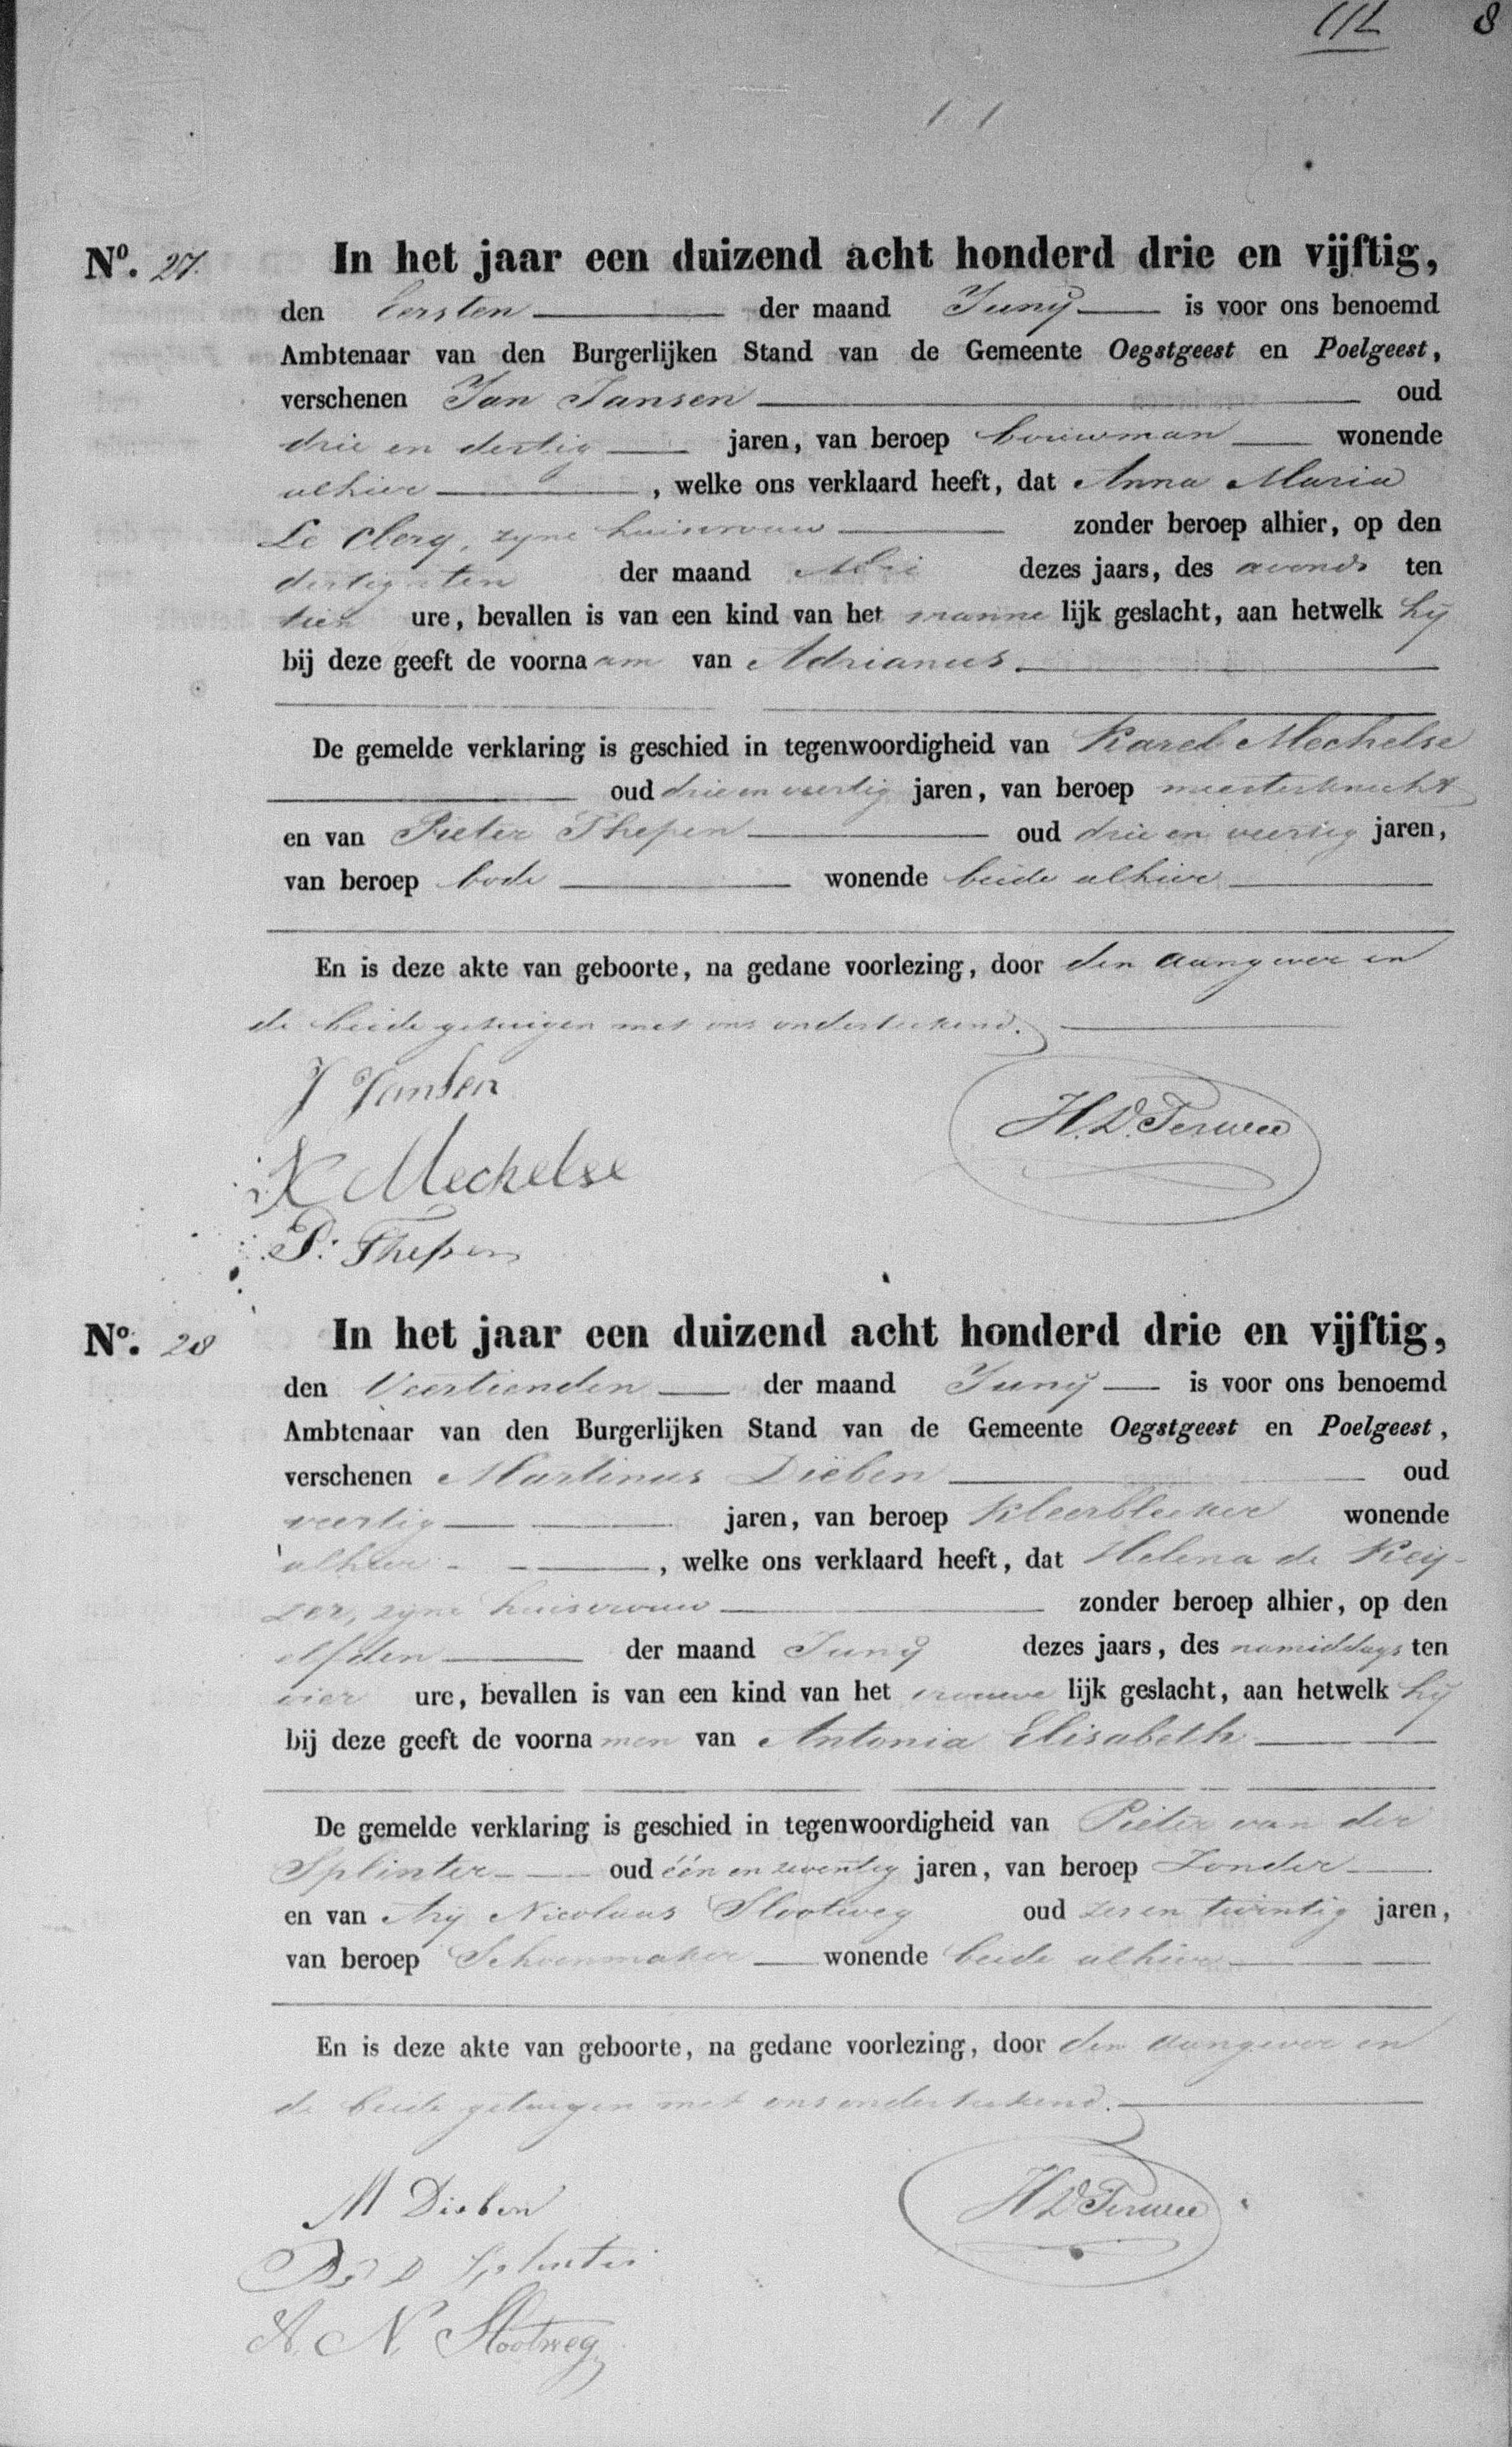 8
No. 27. In het jaar een duizend acht honderd drie en vijftig,
den Eersten der maand Juny is voor ons benoemd
Ambtenaar van den Burgerlijken Stand van de Gemeente Oegstgeest en Poelgeest,
verschenen Jan Jansen oud
drie en dertig jaren, van beroep bouwman wonende
alhier, welke ons verklaard heeft, dat Anna Maria
Le Clerq, zyne huisvrouw zonder beroep alhier, op den
dertigsten der maand Mei dezes jaars, des avonds ten
tien ure, bevallen is van een kind van het manne lijk geslacht, aan hetwelk hij
bij deze geeft de voornaam van Adrianus.
De gemelde verklaring is geschied in tegenwoordigheid van Karel Mechelse
oud drie en veertig jaren, van beroep meesterknecht
en van Pieter Thepen oud drie en veertig jaren,
van beroep bode wonende beide alhier
En is deze akte van geboorte, na gedane voorlezing, door den aangever en
de beide getuigen met ons onderteekend.
J Jansen
H. D. Terwee
K Mechelse
P. Thepen
No. 28 In het jaar een duizend acht honderd drie en vijftig,
den Veertienden der maand Juny is voor ons benoemd
Ambtenaar van den Burgerlijken Stand van de Gemeente Oegstgeest en Poelgeest,
verschenen Martinus Dieben oud
veertig jaren, van beroep Kleerbleeker wonende
alhier, welke ons verklaard heeft, dat Helena de Keij-
zer, zyne huisvrouw zonder beroep alhier, op den
elfden der maand Juny dezes jaars, des namiddags ten
vier ure, bevallen is van een kind van het vrouwe lijk geslacht, aan hetwelk hij
bij deze geeft de voornamen van Antonia Elisabeth
De gemelde verklaring is geschied in tegenwoordigheid van Pieter van der
Splinter oud één en zeventig jaren, van beroep Zonder
en van Arij Nicolaas Slootweg oud zes en twintig jaren,
van beroep Schoenmaker wonende beide alhier
En is deze akte van geboorte, na gedane voorlezing, door den aangever en
de beide getuigen met ons onderteekend.
M Dieben
H D Terwee
Splinter
A. N. Slootweg